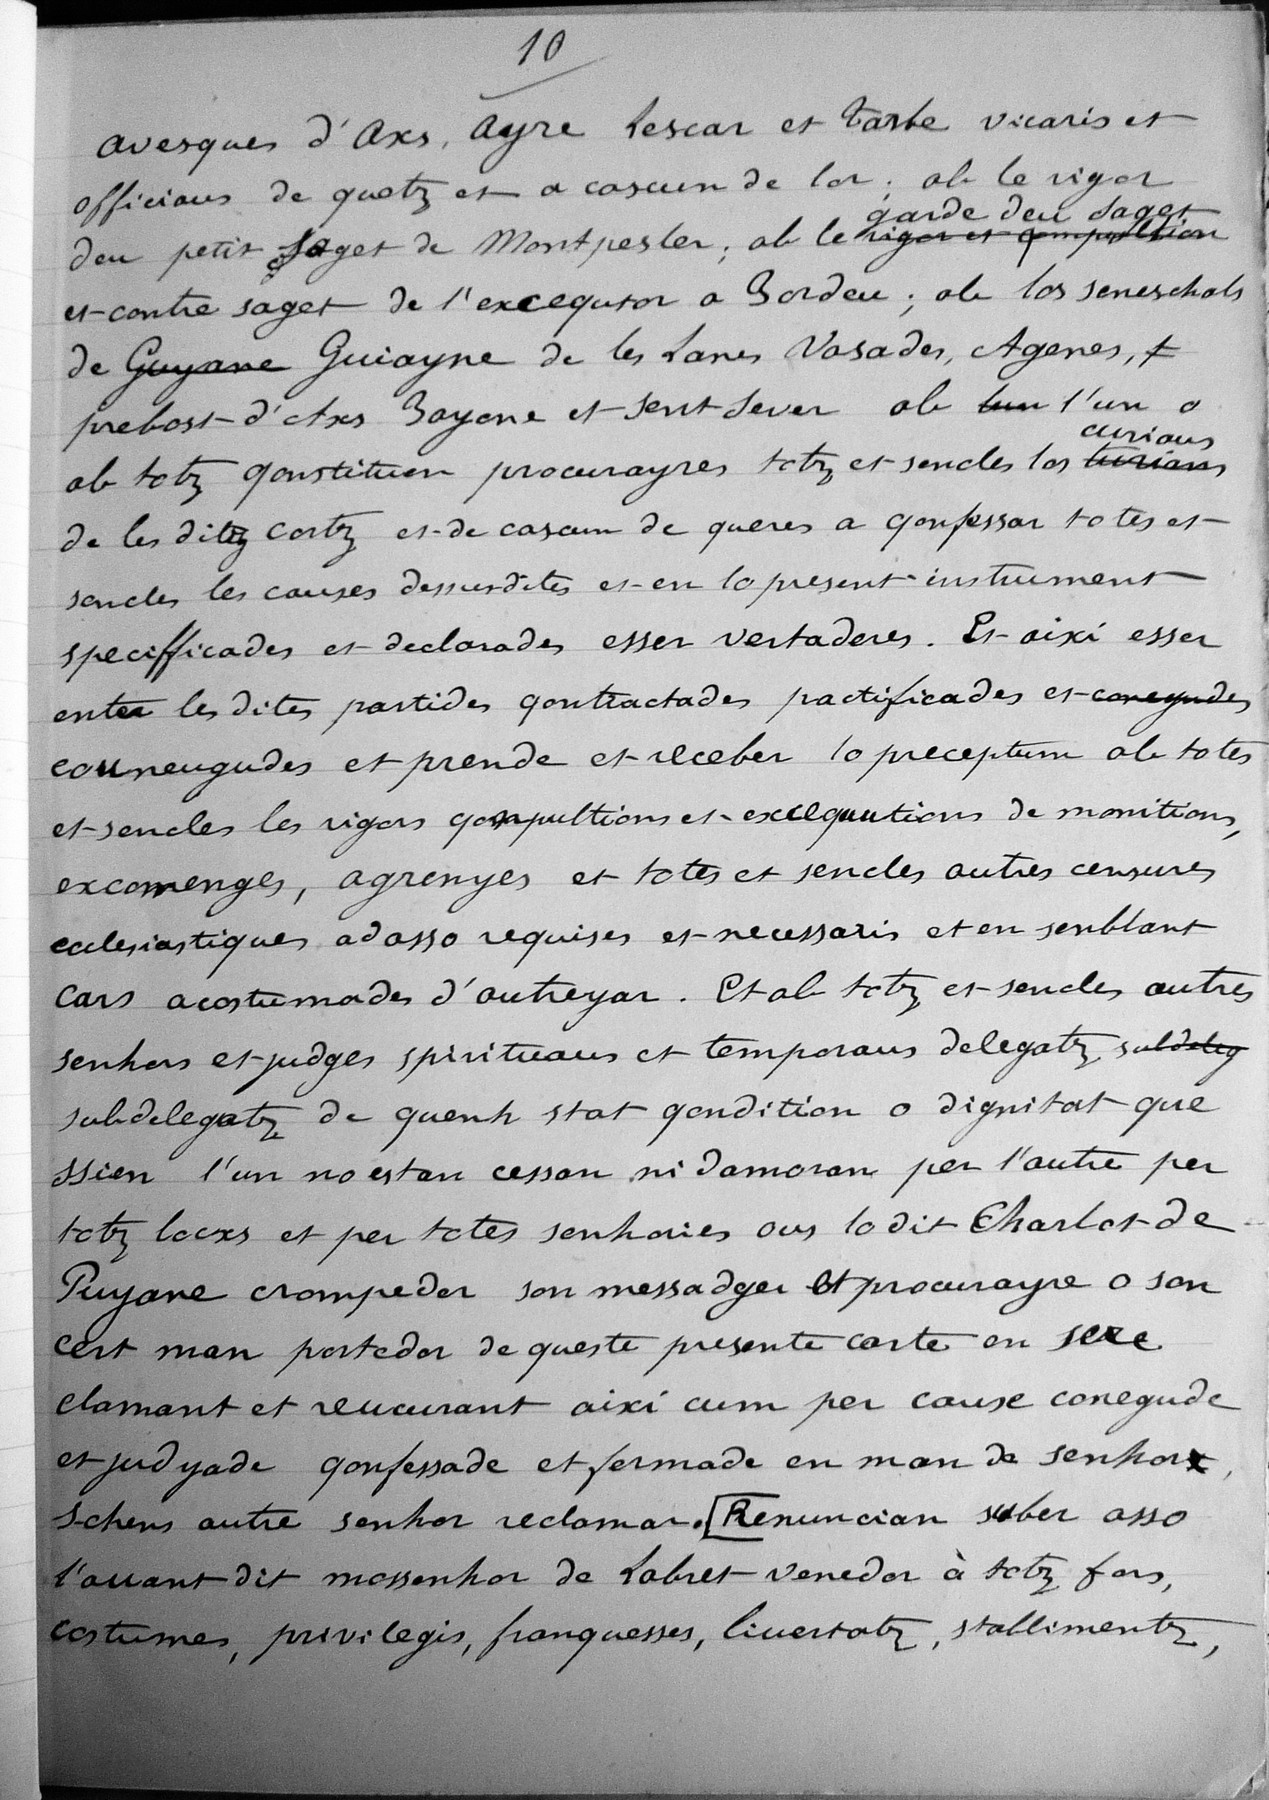 10
avesques d'Axs, Ayre Lescar et Tarbe vicaris et
officiaus de quetz et a cascun de lor ; ab le rigor
garde deu saget
deu petit saget de Montpesler ; ab le rigor et compultion
et contre saget de l'excequtor a Bordeu ; ab los seneschals
de Guyane Guiayne de les Lanes Vasades, Agenes,
prebost d'Axs Bayone et Sent Sever ab lun l'un o
curiaus
ab totz qonstituen procurayres totz et sencles los curians
de les ditz cortz et de cascun de queres a qonfessar totes et
sencles les causes dessusdites et en lo present instrument
specifficades et declarades esser vertaderes. Et aixi esser
enter les dites partides qontractades pactificades et conegudes
counengudes et prende et receber lo preceptum ab totes
et sencles les rigors qonpultions et excequutions de monitions,
excomenges, agrenyes et totes et sencles autres censures
ecclesiastiques ad asso requises et necessaris et en senblant
cars acostumades d'autreyar. Et ab totz et sencles autres
senhors et judges spirituaus et temporaus delegatz subdeleg
subdelegatz de quenh stat qondition o dignitat que
ssien l'un no estan cessan ni damoran per l'autre per
totz locxs et per totes senhories ous lo dit Charlot de
Puyane crompedor son messadger et procurayre o son
cert man portador de queste presente carte en sere
clamant et reucurant aixi cum per cause conegude
et judyade qonfessade et fermade en man de senhor,
schens autre senhor reclamar. [Renuncian suber asso
l'auant dit mossenhor de Labret venedor à totz fors,
costumes, privilegis, franquesses, liuertatz, stablimentz,